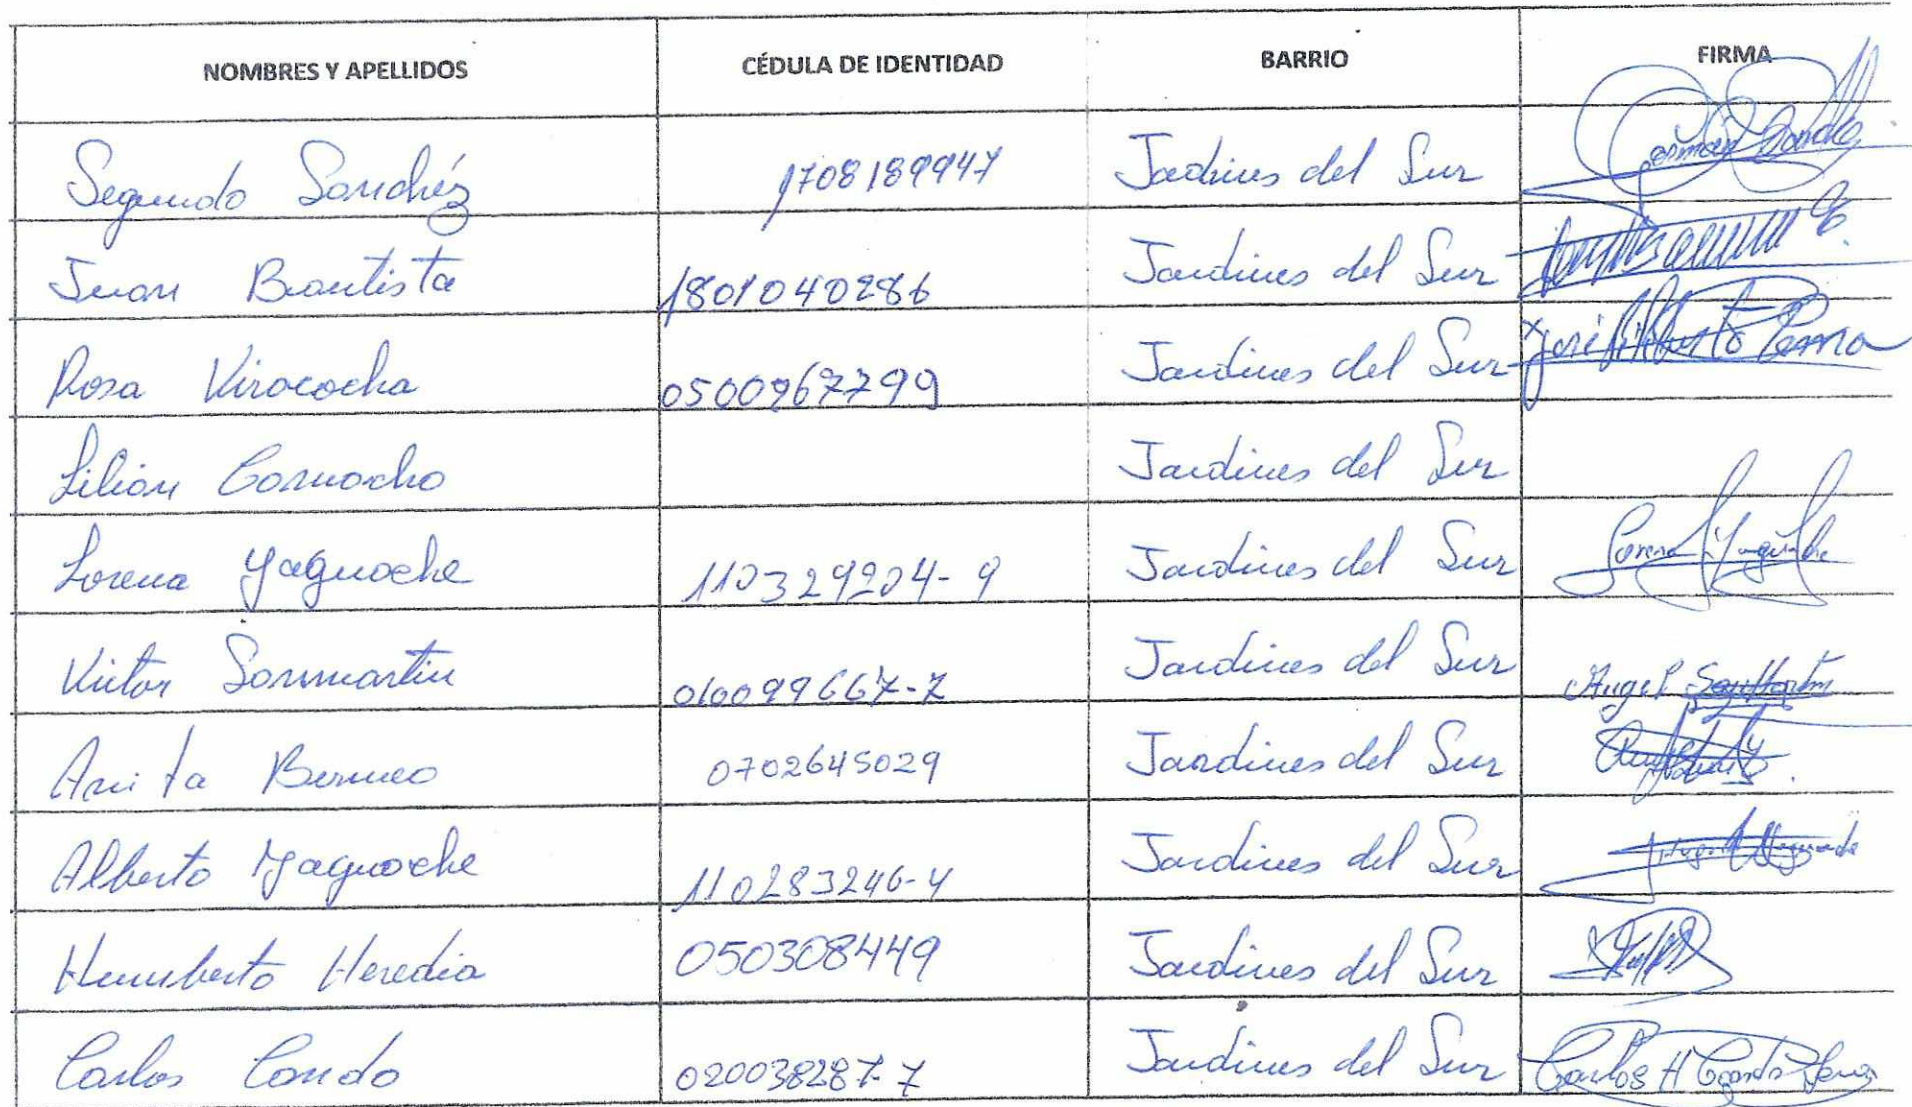 NOMBRES Y APELLIDOS CÉDULA DE IDENTIDAD BARRIO FIRMA
Segundo Sanchéz 1708189947 Jardines del Sur
Juan Bautista 1801040286 Jardines del Sur
Rosa Viracocha 0500967799 Jardines del Sur José Alberto Perra
Lilian Camacho Jardines del Sur
Lorena Yaguache 110329204-9 Jardines del Sur Lorena Yaguache
Victor Sanmartin 010099667-7 Jardines del Sur Angel SanMartin
Anita Bermeo 0702645029 Jardines del Sur
Alberto Yaguache 110283246-4 Jardines del Sur
Humberto Heredia 050308449 Jardines del Sur
Carlos Condo 020038287-7 Jardines del Sur Carlos H Condo